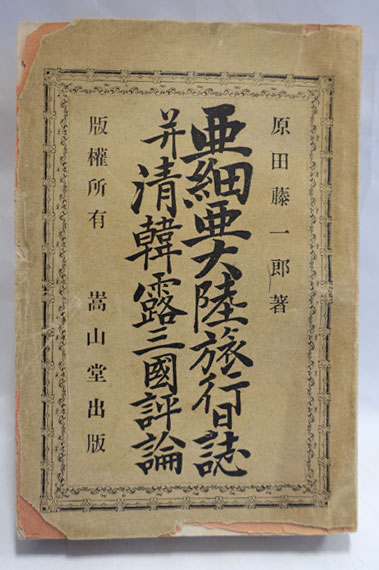 原田藤一郎著
亜細亜大陸旅行日誌
并清韓露三國評論
版權所有　嵩山堂出版